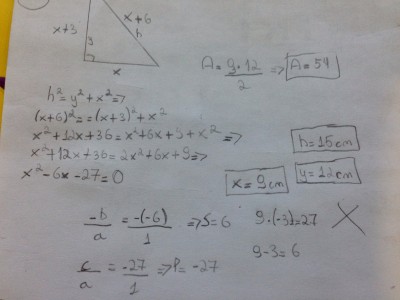 x+3
y
x+6
h
x
A = 9·12/2 => A = 54
h² = y² + x² =>
(x+6)² = (x+3)² + x²
x² + 12x + 36 = x² + 6x + 9 + x² =>
x² + 12x + 36 = 2x² + 6x + 9 =>
x² - 6x - 27 = 0
h = 15 cm
x = 9 cm
y = 12 cm
-b/a = -(-6)/1 => S = 6
9·(-3) = 27
9 - 3 = 6
c/a = -27/1 => P = -27